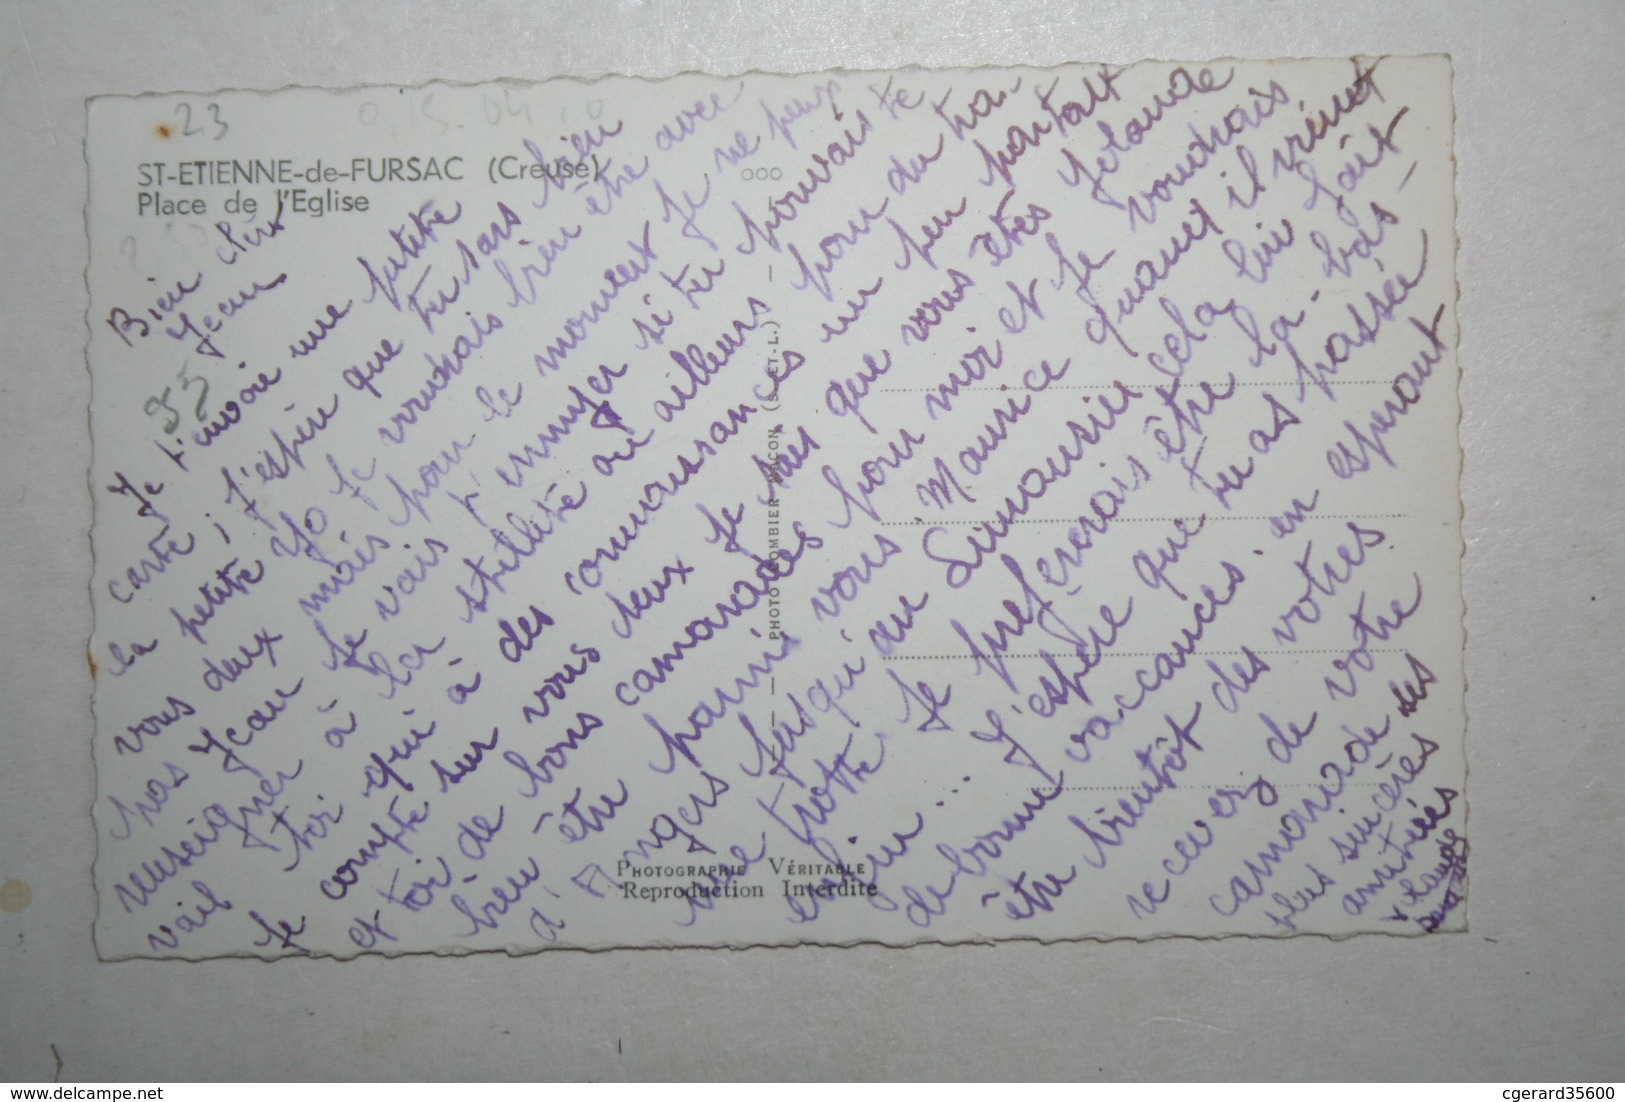 23
ST-ETIENNE-de-FURSAC (Creuse)
Place de l'Eglise
Bien cher
Jean
Je t'envoie une petite
carte, j'espère que tu sais bien
la petite Yo je voudrais bien être avec
vous deux mais pour le moment je ne peux
pas Jean je vais t'ennuyer si tu pouvais te
renseigner à la stellité ou ailleurs pour du tra-
vail toi qui à des connaissances un peu partout
Je compte sur vous deux je sais que vous êtes Yolande
et toi de bons camarades pour moi et je voudrais
bien être parmis vous, Maurice quand il vient
d'Angers jusqu'au Limousin cela lui fait
une trotte, Je prefererais être là-bas
enfin... J'espère que tu as passée
de bonne vaccances. en esperant
être bientôt des votres.
recever de votre
camarade ses
plus sincères
amitiées
Claude
PHOTO COMBIER MACON (S.-ET-L.)
PHOTOGRAPHIE VÉRITABLE
Reproduction Interdite
delcampe.net
cgerard35600